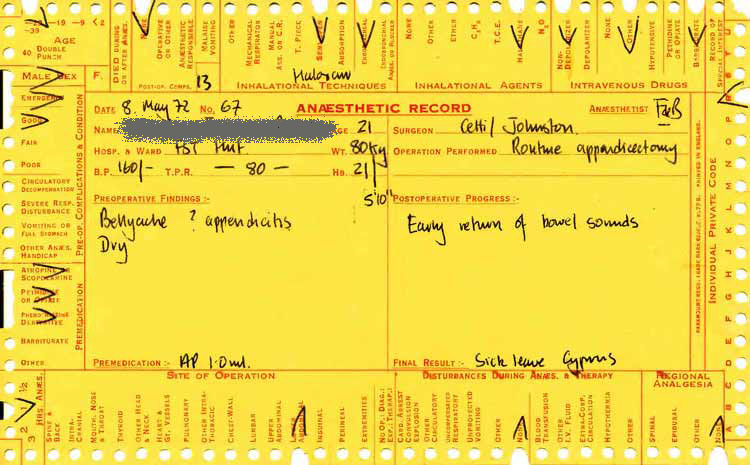 -39 -19 -9 <2
AGE
40 DOUBLE PUNCH
MALE SEX F.
DIED DURING OR AFTER ANÆS.
NONE
OPERATIVE OR OTHER
ANÆSTHETIC RESPONSIBLE
MALAISE VOMITING
OTHER
POST-OP. COMPS. 13
MECHANICAL RESPIRATOR
MANUAL ASS. OR C.R.
T. PIECE
ABSORPTION
ENDOTRACHEAL
ENDOBRONCHIAL
INHALATIONAL TECHNIQUES
NONE
OTHER
ETHER
C₃H₆
T.C.E.
HALOTHANE
N₂O
INHALATIONAL AGENTS
NON-DEPOLARIZER
DEPOLARIZER
NONE
OTHER
HYPOTENSIVE
PETHIDINE OR OPIATE
BARBITURATE
INTRAVENOUS DRUGS
RECORD OF SPECIAL INTEREST
DATE 8. May 72 NO. 67 ANÆSTHETIC RECORD ANÆSTHETIST
NAME AGE 21 SURGEON Cetti/Johnston.
HOSP. & WARD WT. 80Kg OPERATION PERFORMED Routine appendicectomy
B.P. 160/- T.P.R. — 80 — HB. 21
5'10"
PREOPERATIVE FINDINGS:- POSTOPERATIVE PROGRESS:-
Bellyache ? appendicitis Early return of bowel sounds
Dry
PREMEDICATION:- AP 1.0ml. FINAL RESULT:- Sick leave Cyprus
EMERGENCY
GOOD
FAIR
POOR
CIRCULATORY DECOMPENSATION
SEVERE RESP. DISTURBANCE
VOMITING OR FULL STOMACH
OTHER ANÆS. HANDICAP
PRE-OP. COMPLICATIONS & CONDITION
ATROPINE OR SCOPOLAMINE
PETHIDINE OR OPIATE
PHENOTHIAZINE DERIVATIVE
BARBITURATE
OTHER
PREMEDICATION
INDIVIDUAL PRIVATE CODE
PRINTED IN ENGLAND.
A B C D E F G H I J K L M N O P Q R S T U
½ 1 2 3
HRS. ANÆS.
SITE OF OPERATION
SPINE & BACK
INTRA-CRANIAL
MOUTH, NOSE & THROAT
THYROID
OTHER HEAD & NECK
HEART & GT. VESSELS
PULMONARY
OTHER INTRA-THORACIC
CHEST-WALL
LUMBAR
UPPER ABDOMINAL
LOWER ABDOMINAL
INGUINAL
PERINEAL
EXTREMITIES
NO OP., DIAG., EXP., THERAPY
DISTURBANCES DURING ANÆS. & THERAPY
CARD. ARREST
CONVULSION
EXPLOSION
OTHER CIRCULATORY
UNCOMPENSATED RESPIRATORY
UNPROVOKED VOMITING
OTHER
NONE
BLOOD TRANSFUSION
OTHER I.V. FLUID
EXTRA-CORP. CIRCULATION
HYPOTHERMIA
OTHER
REGIONAL ANALGESIA
SPINAL
EPIDURAL
OTHER
NONE